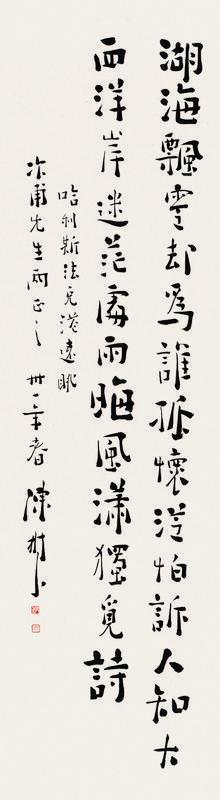 湖海飄零却為誰孤懷從怕訴人知大
西洋岸迷茫處雨晦風瀟獨覓詩
哈利斯法克港遠眺
冰甫先生兩正之 卅一年春 陳樹人